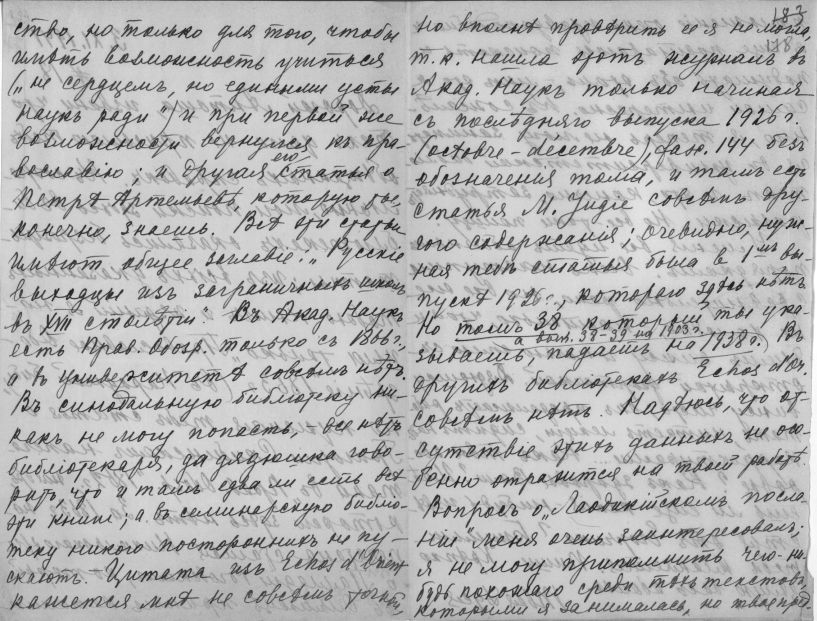 ство, но только для того, чтобы
имѣть возможность учиться
(„не сердцемъ, но едиными усты
наукъ ради") и при первой же
возможности вернулся къ пра-
вославію, и другая его статья о
Петрѣ Артемьевѣ, которую ты,
конечно, знаешь. Всѣ эти статьи
имѣютъ общее заглавіе: „Русскіе
выходцы изъ заграничныхъ школъ
въ XVII столѣтіи". Въ Акад. Наукъ
есть Прав. Обозр. только съ
а въ университетѣ совсѣмъ нѣтъ.
Въ синодальную библіотеку ни-
какъ не могу попасть, – все нѣтъ
библіотекаря, да дядюшка гово-
ритъ, что и тамъ едва ли есть всѣ
эти книги; а въ семинарскую библіо-
теку никого постороннихъ не пу-
скаютъ. – Цитата изъ Echos d'Orient
кажется мнѣ не совсѣмъ точной,
183
118
но вполнѣ провѣрить ее я не могла,
т. к. нашла этотъ журналъ въ
Акад. Наукъ только начиная
съ послѣдняго выпуска 1926 г.
(octobre – décembre), fasc. 144 безъ
обозначенія тома, и тамъ есть
статья M. Jugie совсѣмъ дру-
гого содержанія; очевидно, нуж-
ная тебѣ статья была в 1мъ вы-
пускѣ 1926 г., котораго здѣсь нѣтъ
Но томъ 38 который ты ука-
а вып. 38–39 на 1903 г.
зываешь, падаетъ на 1938 г.) Въ
другихъ библіотекахъ Echos d'Or.
совсѣмъ нѣтъ. Надѣюсь, что от-
сутствіе этихъ данныхъ не осо-
бенно отразится на твоей работѣ.
Вопросъ о „Лаодикійскомъ посла-
ніи" меня очень заинтересовалъ;
я не могу припомнить чего-ни-
будь похожаго среди тѣхъ текстовъ,
которыми я занималась, но твое